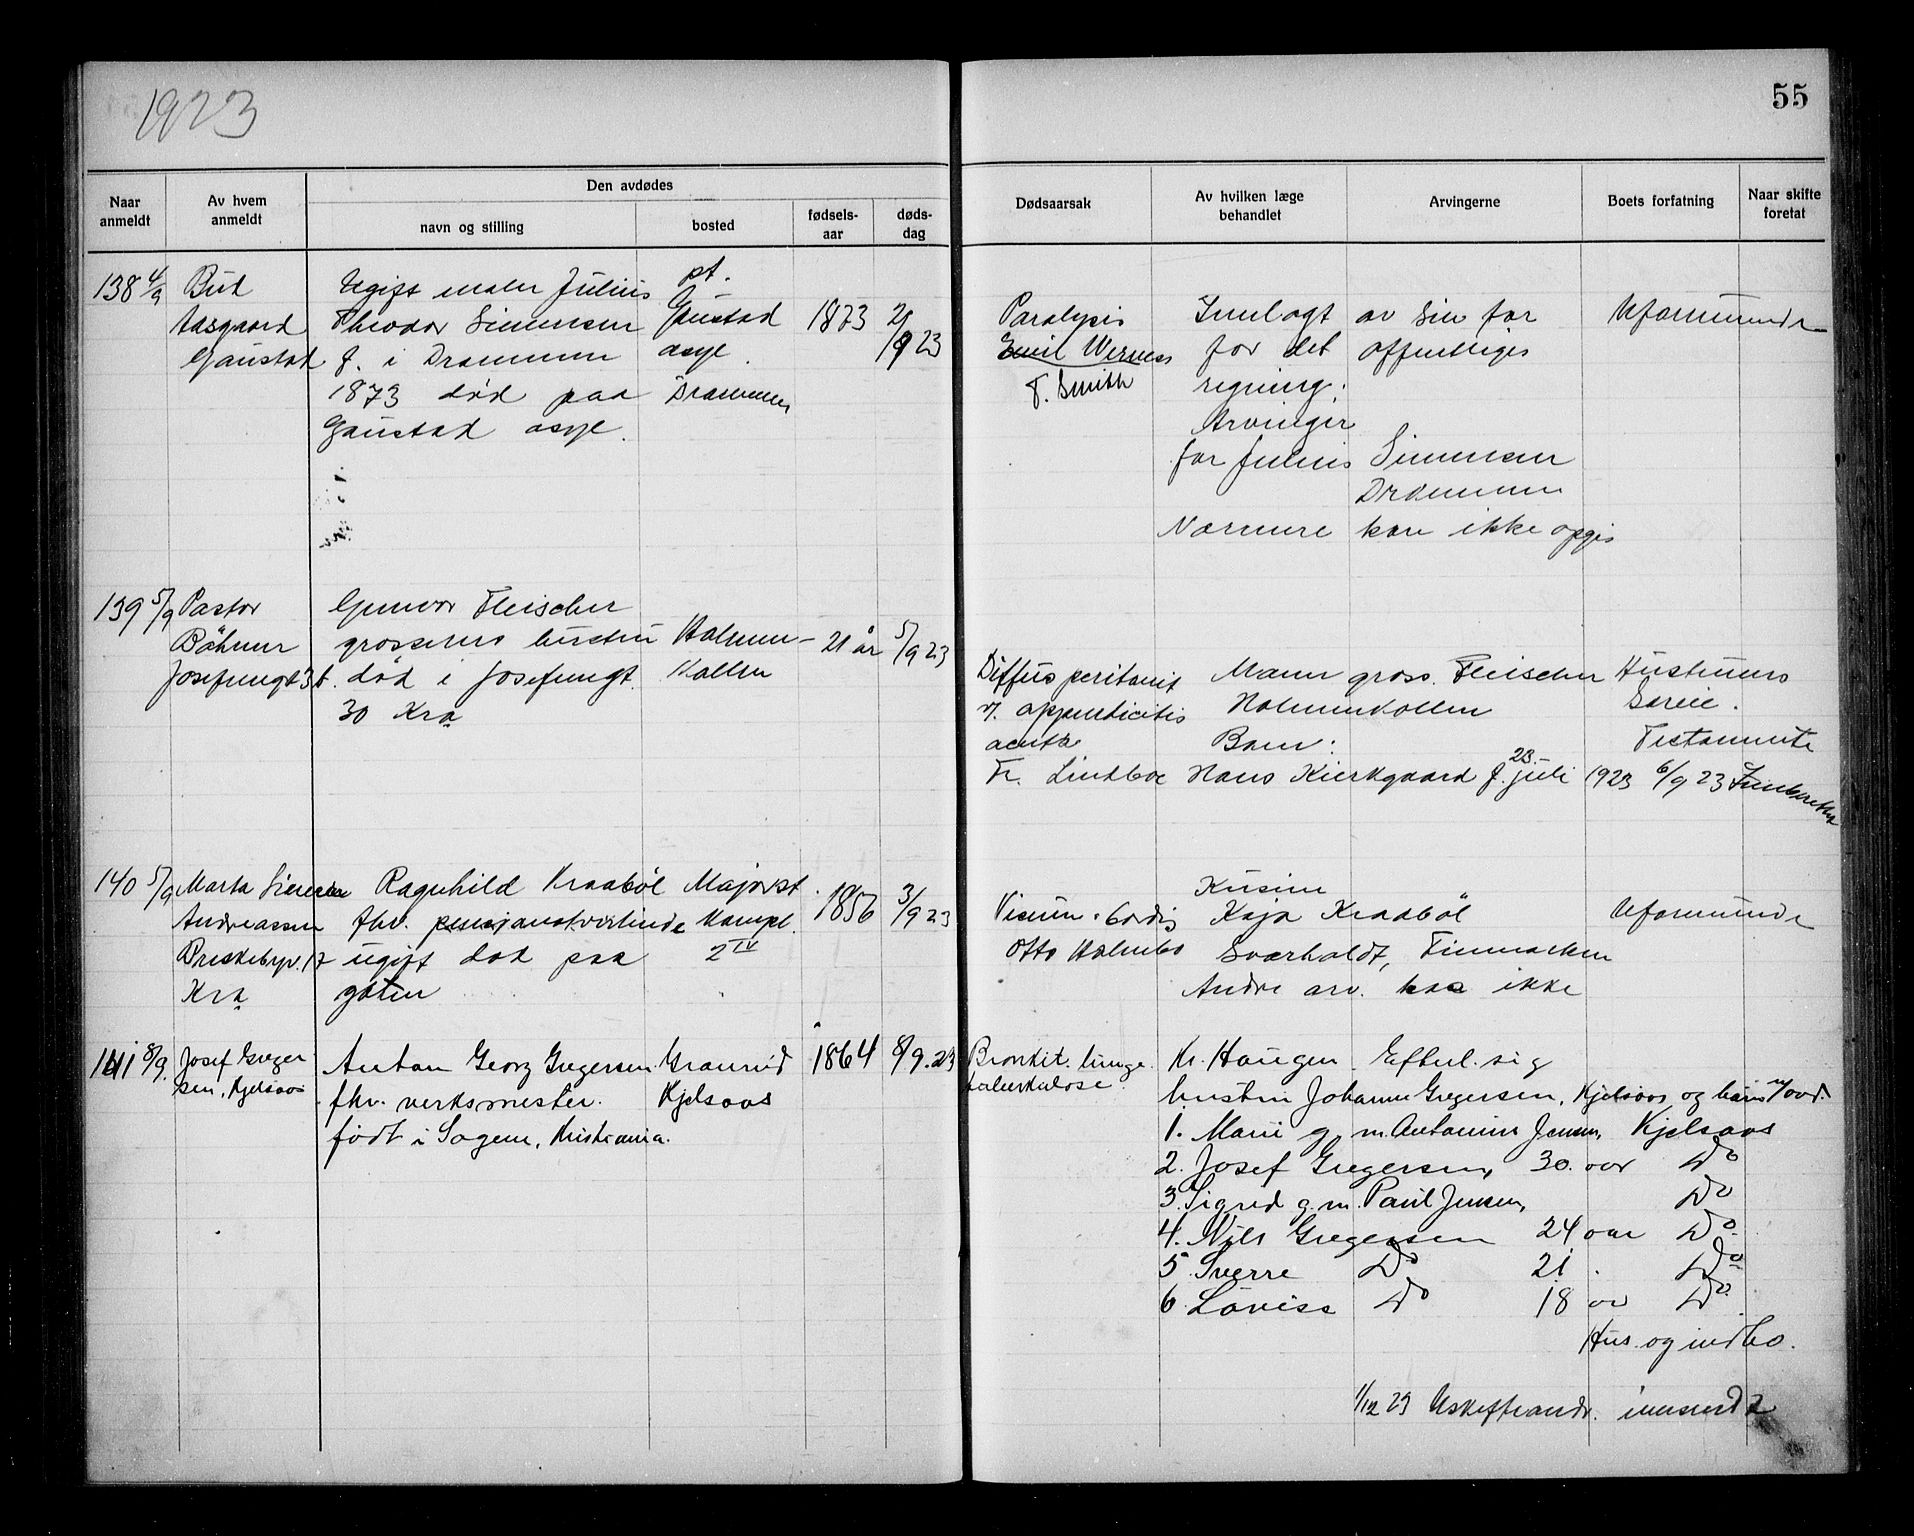 1923
55
Naar anmeldt
Av hvem anmeldt
Den avdødes
navn og stilling
bosted
fødsels-aar
døds-dag
Dødsaarsak
Av hvilken læge behandlet
Arvingerne
Boets forfatning
Naar skifte foretat
138 4/9
Aasgaard
Gaustad
Ugift maler Julius
Theodor Simensen
f. i Drammen
1873 død paa
Gaustad asyl.
pt.
Gaustad
asyl.
Drammen
1873
2/9 23
Paralysis
Emil Werness
T. Smith
Innlagt av sin far
for det offentliges
regning.
Arvinger
far Julius Simensen
Drammen
Nærmere kan ikke opgis
Uformuende
139 5/9
Pastor
Böhmer
Josefinegt
Gunvor Fleischer
grosserers hustru
død i Josefinegt.
30 Kra
Holmen-
kollen
21 år
5/9 23
Diffus peritonit
v. appendicitis
acuta
Fr. Lindboe
Mann gross. Fleischer
Holmenkollen
Barn:
Hans Kierkgaard f. 23. juli 1923
Hustruens
særeie.
Testamente
6/9 23
140 5/9
Marta
Andreassen
Kra
Ragnhild Kraaböl
fhv. pensjonatvertinde
ugift død paa
gaten
Majorst.
Kompl.
2 IV
1856
3/9 23
Vitium cordis
Otto Holmbo
Kusine
Kaja Kraaböl
Sværholdt, Finmarken
Andre arv. has ikke
Uformuende
141 8/9.
Josef Greger
sen, Kjelsaas
Anton Georg Gregersen.
fhv. verksmester.
født i Sagene, Kristiania.
Granrud
Kjelsaas
1864
8/9.23
Bronkit. lunge
tuberkulose.
Kr. Haugen. Efterl. sig
hustru Johanne Gregersen, Kjelsaas og barn
1. Marie g.m. Antonius Jensen, Kjelsaas
2. Josef Gregersen, 30. aar Do
3. Sigrid g.m. Paul Jensen, Do
4. Nils Gregersen 24 aar Do
5 Sverre Do 21 . Do
6 Lovise Do 18 aar Do
Hus og indbo.
1/12 23 innsendt